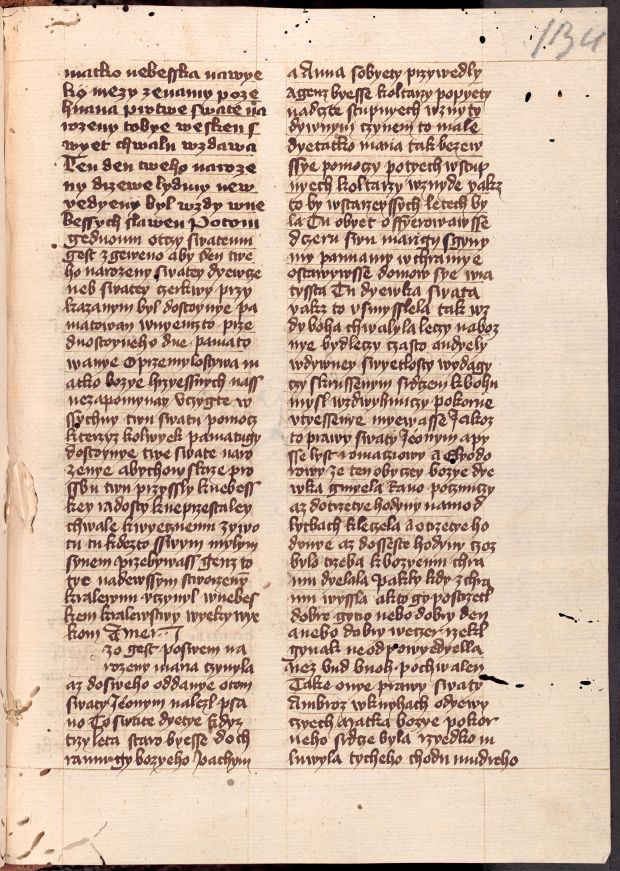 134
matko nebesska nawye
ko mezy zenamy poze
hnana protwe swate na
rozeny tobye wesken s
wyet chwalu wzdawa
Ten den tweho naroze
ny dizewe lydmy new
vedyeny byl wzdy wne
bessych slawen Potom
geduomu otczy swatemu
gest zgeweno aby den twe
ho narozeny swatey dyewcze
neb swatey czerkwy przy
kazanym byl dostoyne pa
matowan wnyemzto prze
dnostoyneho dne pamato
wanye O przemylostywa m
atko bozye hrzyessnych nass
nezapomynay Vczygte w
ssychny twu swatu pomocz
kterzyz kolwyek pamatugy
dostoyne twe swate naro
zenye abychow skrze pro
ssbu twu przyssly knebess
key radosty kneprzestaley
chwale kwyecznemu zywo
tu tu kdezto sswym mylym
synem przebywass genz to
tye nadewssym stworzenym
kralewnu vczynyl wnebes
kem kralewstwy wyeky wye
kom Amen T
zo gest poswem na
rozeny maria czynyla
az doswcho oddanye otom
swaty Jeronym nalezl psa
no To swate dyetye kdyz
trzy leta staro byesse do ch
ramu gy bozyeho Joachym
a Anna sobyety przywedly
Agenz byesse koltarzy popyety
nadczte stupnyech wznyty
dywnym czynem to male
dyetatko maria tak bezew
ssye pomoczy potyech wstup
nyech koltarzy wznyde yakz
to by wstarzeyssych letech by
la Tu obyet offyerowawsse
dczeru swu marigy sgyny
my pannamy wchramye
ostawywsse domow sye wra
tyssta Tu dyewka swata
yakz to vsmysslela tak wz
dy boha chwalyla leczy naboz
nye bydleczy czasto andyely
wdywney swyetlosty wydagy
czy skrussenym srdczem kbohu
mysl wzdwyhniczy pokorne
vtyessenye myewasse Jakoz
to prawy swaty Jeronym apy
sse lyst romaczowy a Elyodo
rowy ze ten obyczey bozye dye
wka gmyela Rano poczniczy
az dotrzetye hodyny namod
lytbach kleczela Aotrzetye ho
dyny az dossesté hodyny czoz
bylo trzeba kbozyemu chra
mu dyelala Pakly kdy zchra
mu wyssla akto gy postrzetl
dobro gytro nebo dobry den
anebo dobry weczer rzekl
gynak neodpowyedyella
nez bud buoh pochwalen
Take onye prawy swaty
Ambroz wknyhach odyewy
czyech Matka bozye pokor
neho srdcze byla rzyedko m
luwyla tycheho chodu mudreho